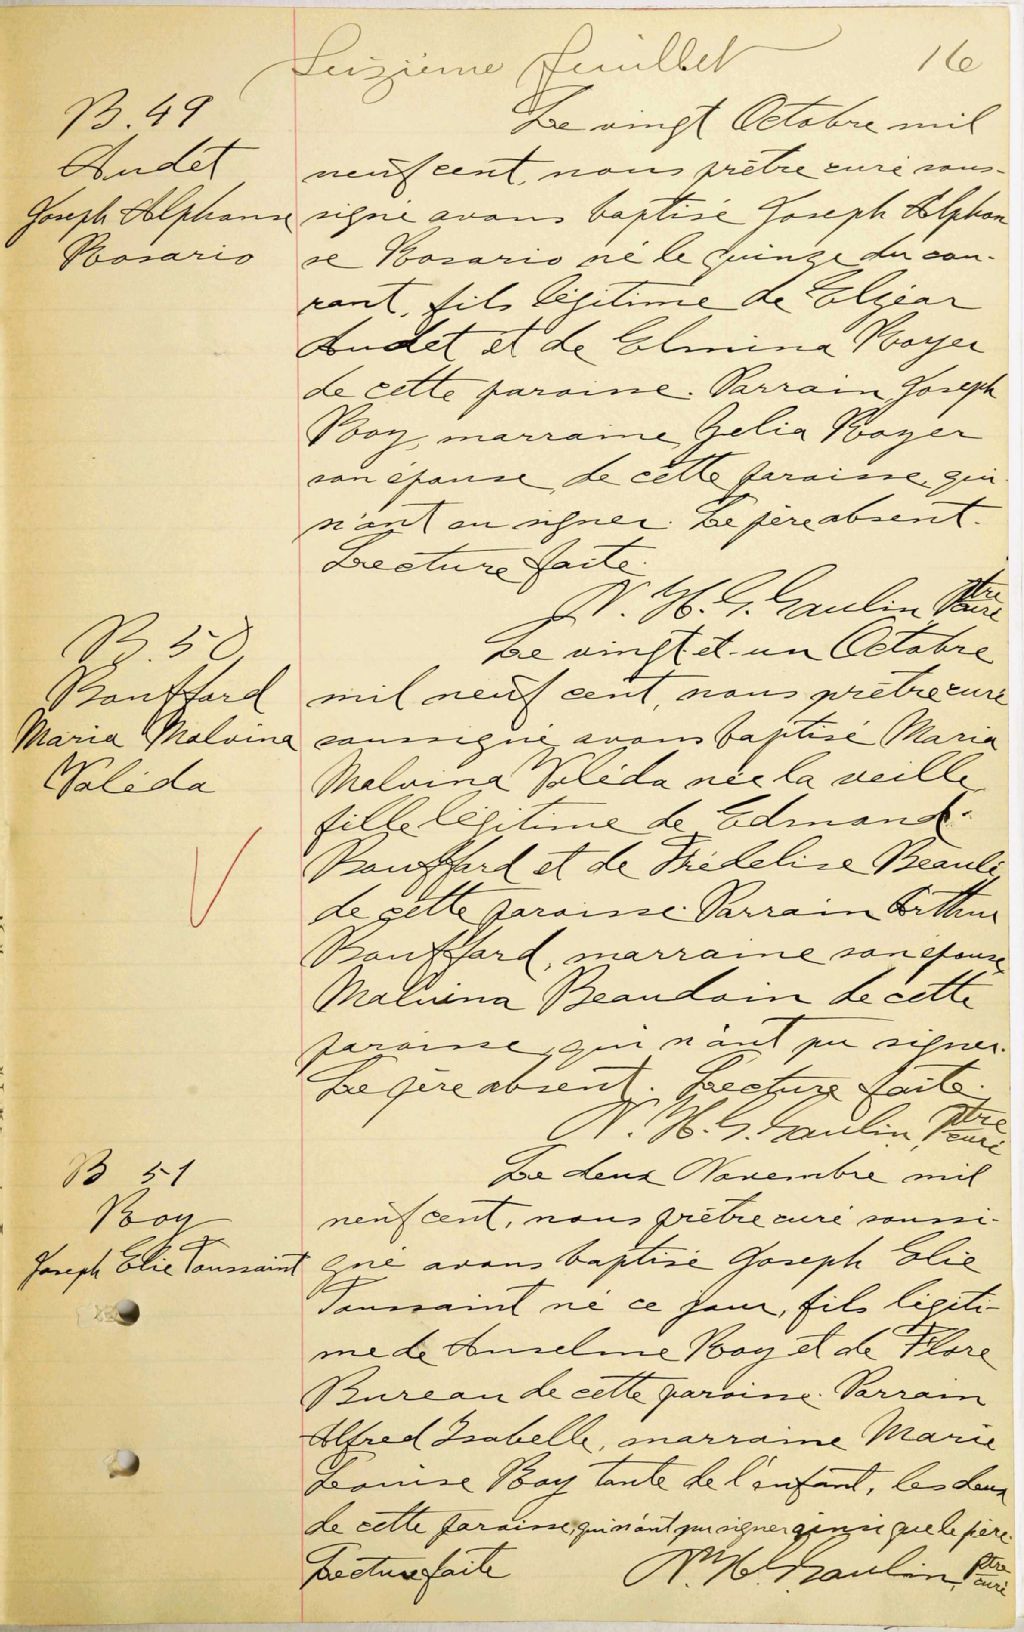 Seizième feuillet 16
B. 49
Audet
Joseph Alphonse
Rosario
Le vingt Octobre mil
neuf cent, nous prêtre curé sous-
signé avons baptisé Joseph Alphon
se Rosario né le quinze du cou-
rant, fils légitime de Elzéar
Audet et de Elmina Royer
de cette paroisse. Parrain Joseph
Roy, marraine Zelia Royer
son épouse, de cette paroisse, qui
n'ont su signer. Le père absent.
Lecture faite.
N. H. G. Gaulin, Ptre curé
B. 50
Bouffard
Maria Malvina
Valéda
Le vingt et un Octobre
mil neuf cent, nous prêtre curé
soussigné avons baptisé Maria
Malvina Valéda née la veille
fille légitime de Edmond
Bouffard et de Frédelise Beaulé
de cette paroisse. Parrain Arthur
Bouffard, marraine son épouse,
Malvina Beaudoin de cette
paroisse, qui n'ont pu signer.
Le père absent. Lecture faite.
N. H. G. Gaulin, Ptre curé
B 51
Roy
Joseph Elie Toussaint
Le deux Novembre mil
neuf cent, nous prêtre curé soussi-
gné avons baptisé Joseph Elie
Toussaint né ce jour, fils légiti-
me de Anselme Roy et de Flore
Bureau de cette paroisse. Parrain
Alfred Isabelle, marraine Marie
Louise Roy tante de l'enfant, les deux
de cette paroisse, qui n'ont pu signer ainsi que le père.
Lecture faite N. H. G. Gaulin, Ptre curé